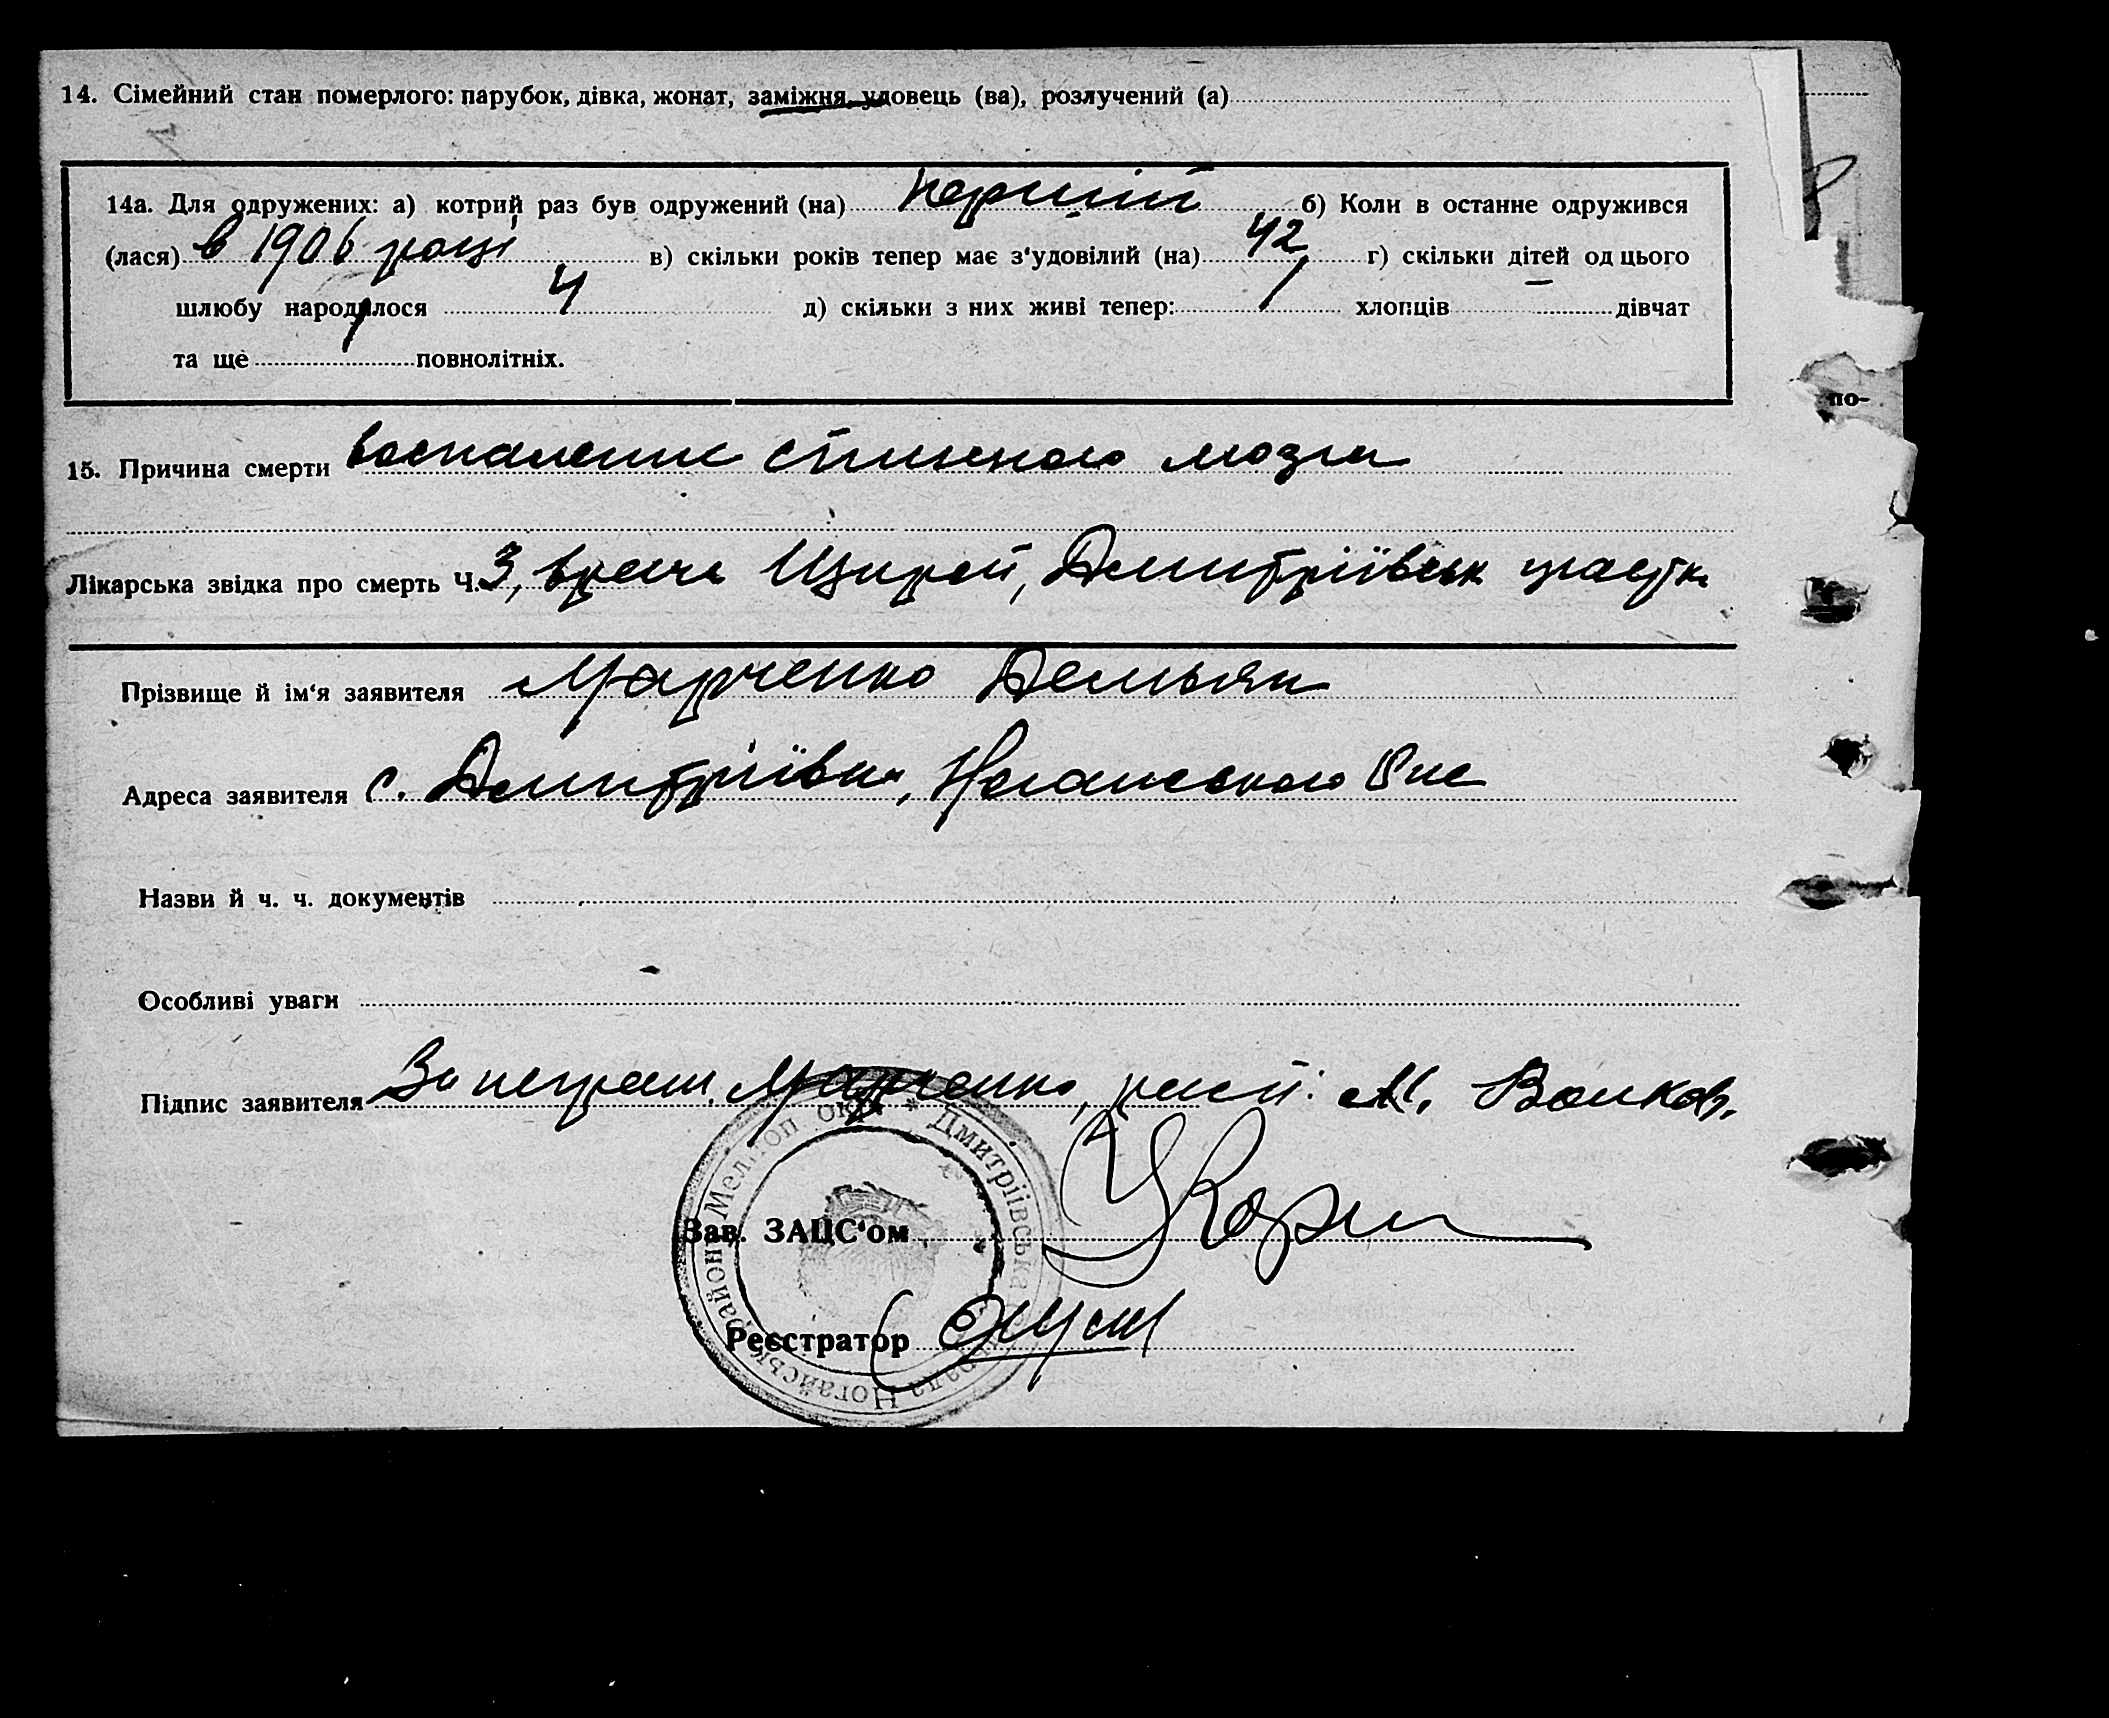 14. Сімейний стан померлого: парубок, дівка, жонат, заміжня, удовець (ва), розлучений (а)
14а. Для одружених: а) котрий раз був одружений (на) перший б) Коли в останне одружився
(лася) в 1906 році в) скільки років тепер має з‘удовілий (на) 42 г) скільки дітей од цього
шлюбу народилося 4 д) скільки з них живі тепер: 1 хлопців — дівчат
та ще 1 повнолітніх.
по-
15. Причина смерти воспаление спинного мозга
Лікарська звідка про смерть Ч. 3, врача Щирой, Дмитріївськ участк
Прізвище й ім‘я заявителя Марченко Демьян
Адреса заявителя с. Дмитрівка, Ногайського
Назви й ч. ч. документів
Особливі уваги
Підпис заявителя За неграм. Марченко, М. Волков.
Зав. ЗАЦС‘ом
Реєстратор
Дмитріївська рада Ногайськ. район. Мел.топ окр.